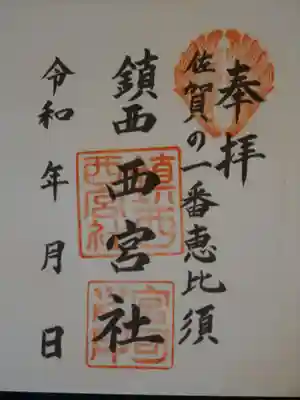 奉拝
佐賀の一番恵比須
鎮西西宮社
令和 年 月 日
鎮西
西宮社
宮司